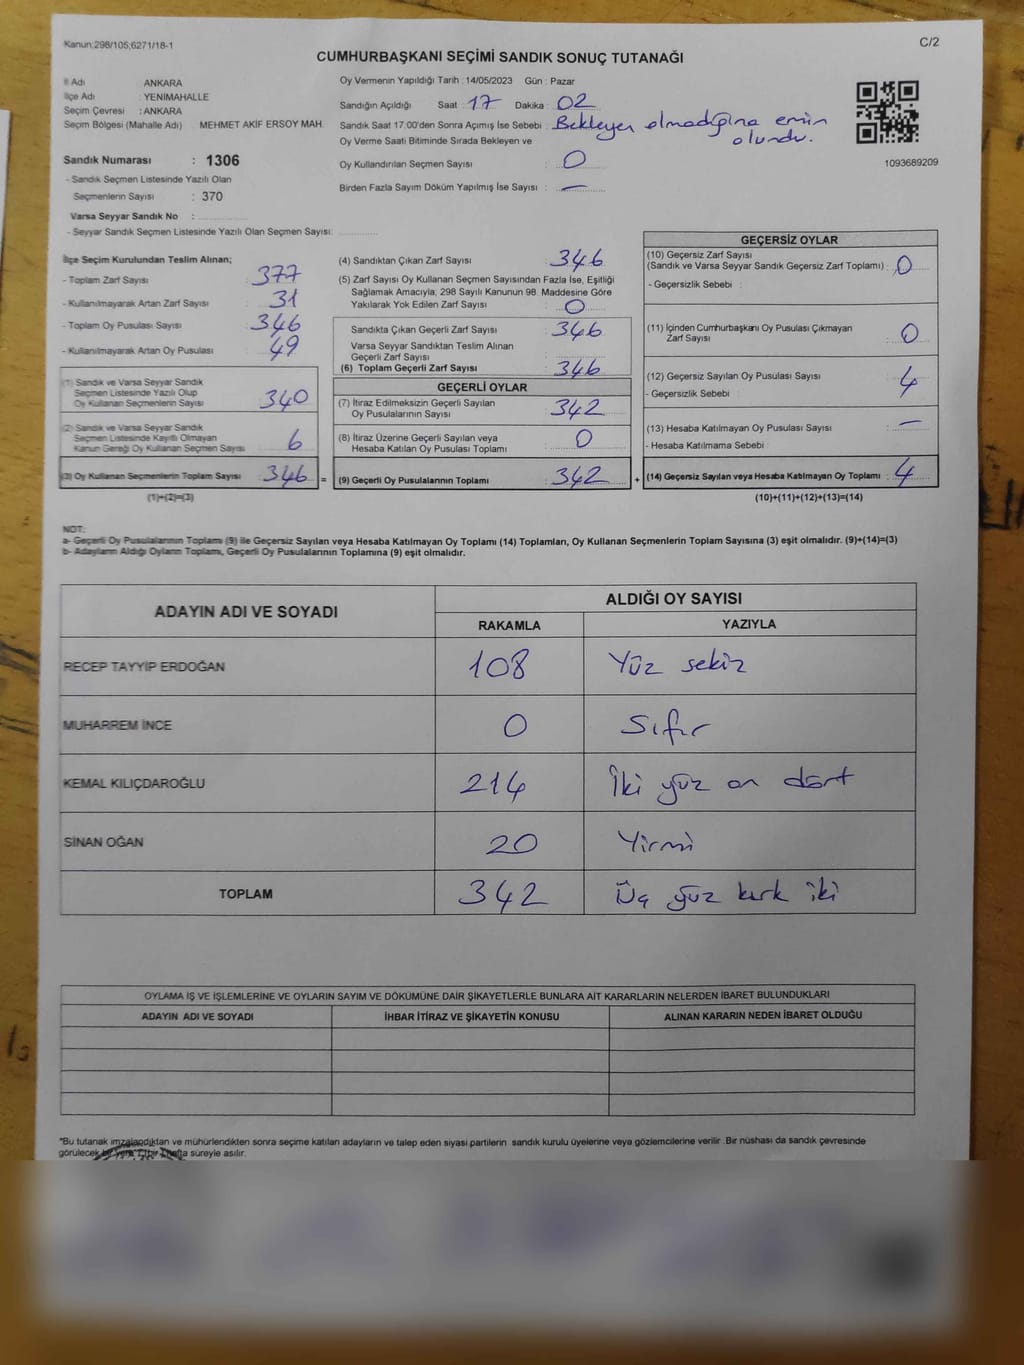 Kanun:298/105,6271/18-1
C/2
CUMHURBAŞKANI SEÇİMİ SANDIK SONUÇ TUTANAĞI
İl Adı ANKARA
İlçe Adı : YENİMAHALLE
Seçim Çevresi : ANKARA
Seçim Bölgesi (Mahalle Adı) MEHMET AKİF ERSOY MAH.
Sandık Numarası : 1306
- Sandık Seçmen Listesinde Yazılı Olan
Seçmenlerin Sayısı : 370
Varsa Seyyar Sandık No :
- Seyyar Sandık Seçmen Listesinde Yazılı Olan Seçmen Sayısı:
Oy Vermenin Yapıldığı Tarih : 14/05/2023 Gün : Pazar
Sandığın Açıldığı Saat : 17 Dakika : 02
Sandık Saat 17:00'den Sonra Açımış İse Sebebi : Bekleyen olmadığına emin
olundu.
Oy Verme Saati Bitiminde Sırada Bekleyen ve
Oy Kullandırılan Seçmen Sayısı : 0
Birden Fazla Sayım Döküm Yapılmış İse Sayısı : —
1093689209
İlçe Seçim Kurulundan Teslim Alınan;
- Toplam Zarf Sayısı : 377
- Kullanılmayarak Artan Zarf Sayısı : 31
- Toplam Oy Pusulası Sayısı : 346
- Kullanılmayarak Artan Oy Pusulası : 49
(1) Sandık ve Varsa Seyyar Sandık
Seçmen Listesinde Yazılı Olup
Oy Kullanan Seçmenlerin Sayısı : 340
(2) Sandık ve Varsa Seyyar Sandık
Seçmen Listesinde Kayıtlı Olmayan
Kanun Gereği Oy Kullanan Seçmen Sayısı 6
(3) Oy Kullanan Seçmenlerin Toplam Sayısı : 346 =
(1)+(2)=(3)
(4) Sandıktan Çıkan Zarf Sayısı : 346
(5) Zarf Sayısı Oy Kullanan Seçmen Sayısından Fazla İse, Eşitliği
Sağlamak Amacıyla; 298 Sayılı Kanunun 98. Maddesine Göre
Yakılarak Yok Edilen Zarf Sayısı : 0
Sandıkta Çıkan Geçerli Zarf Sayısı : 346
Varsa Seyyar Sandıktan Teslim Alınan
Geçerli Zarf Sayısı
(6) Toplam Geçerli Zarf Sayısı : 346
GEÇERLİ OYLAR
(7) İtiraz Edilmeksizin Geçerli Sayılan
Oy Pusulalarının Sayısı : 342
(8) İtiraz Üzerine Geçerli Sayılan veya
Hesaba Katılan Oy Pusulası Toplamı : 0
(9) Geçerli Oy Pusulalarının Toplamı : 342 +
GEÇERSİZ OYLAR
(10) Geçersiz Zarf Sayısı
(Sandık ve Varsa Seyyar Sandık Geçersiz Zarf Toplamı) : 0
- Geçersizlik Sebebi :
(11) İçinden Cumhurbaşkanı Oy Pusulası Çıkmayan
Zarf Sayısı : 0
(12) Geçersiz Sayılan Oy Pusulası Sayısı : 4
- Geçersizlik Sebebi :
(13) Hesaba Katılmayan Oy Pusulası Sayısı : —
- Hesaba Katılmama Sebebi :
(14) Geçersiz Sayılan veya Hesaba Katılmayan Oy Toplamı : 4
(10)+(11)+(12)+(13)=(14)
NOT:
a- Geçerli Oy Pusulalarının Toplamı (9) ile Geçersiz Sayılan veya Hesaba Katılmayan Oy Toplamı (14) Toplamları, Oy Kullanan Seçmenlerin Toplam Sayısına (3) eşit olmalıdır. (9)+(14)=(3)
b- Adayların Aldığı Oyların Toplamı, Geçerli Oy Pusulalarının Toplamına (9) eşit olmalıdır.
ADAYIN ADI VE SOYADI ALDIĞI OY SAYISI
RAKAMLA YAZIYLA
RECEP TAYYİP ERDOĞAN 108 Yüz sekiz
MUHARREM İNCE 0 Sıfır
KEMAL KILIÇDAROĞLU 214 İki yüz on dört
SİNAN OĞAN 20 Yirmi
TOPLAM 342 Üç yüz kırk iki
OYLAMA İŞ VE İŞLEMLERİNE VE OYLARIN SAYIM VE DÖKÜMÜNE DAİR ŞİKAYETLERLE BUNLARA AİT KARARLARIN NELERDEN İBARET BULUNDUKLARI
ADAYIN ADI VE SOYADI İHBAR İTİRAZ VE ŞİKAYETİN KONUSU ALINAN KARARIN NEDEN İBARET OLDUĞU
*Bu tutanak imzalandıktan ve mühürlendikten sonra seçime katılan adayların ve talep eden siyasi partilerin sandık kurulu üyelerine veya gözlemcilerine verilir .Bir nüshası da sandık çevresinde
görülecek bir yere 1 bir hafta süreyle asılır.